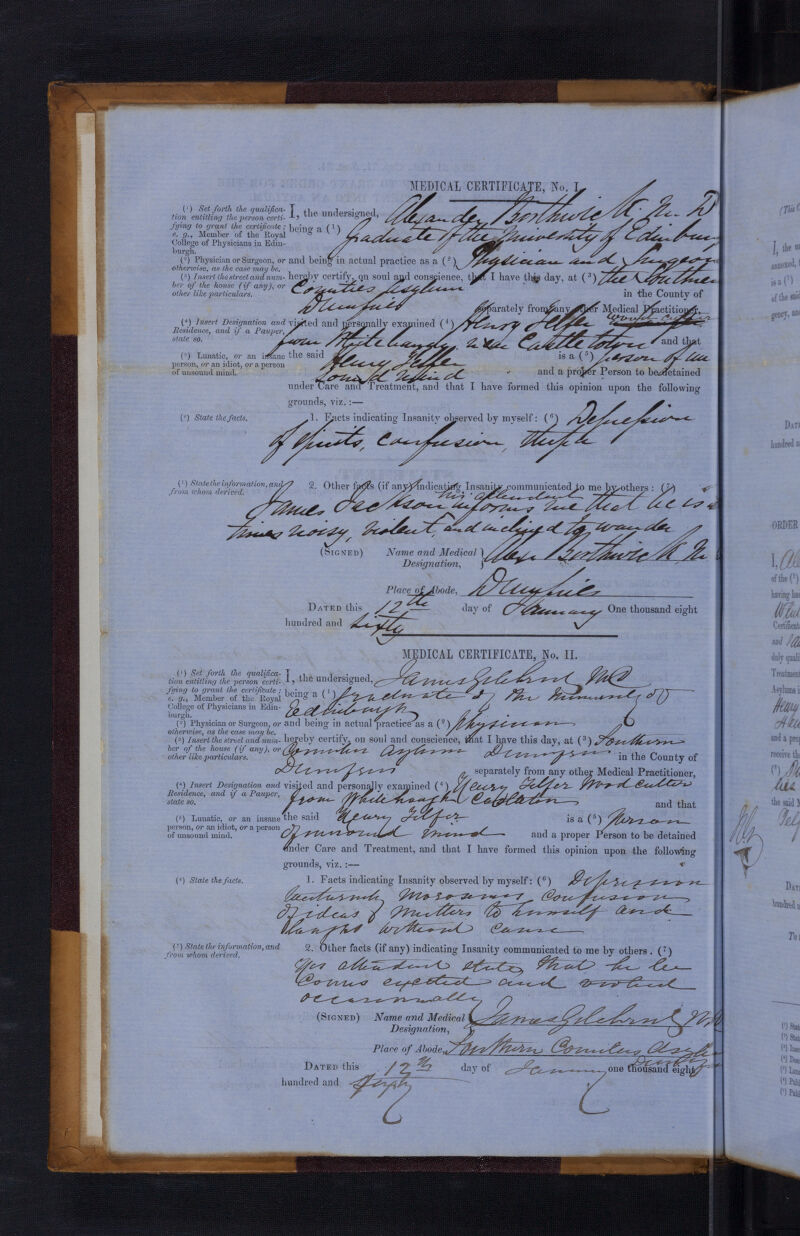 MEDICAL CERTIFICATE, No. I.
(¹) Set forth the qualifica-
tion entitling the person certi-
fying to grant the certificate;
e. g., Member of the Royal
College of Physicians in Edin-
burgh.
I, the undersigned, Alexander Borthwick M. D
being a (¹) Graduate of the University of Edinburgh
(²) Physician or Surgeon, or
otherwise, as the case may be.
and being in actual practice as a (²) Physician and Surgeon
(³) Insert the street and num-
ber of the house (if any), or
other like particulars.
hereby certify, on soul and conscience, that I have this day, at (³) the Southern
Counties Asylum in the County of
Dumfries separately from any other Medical Practitioner,
(⁴) Insert Designation and
Residence, and if a Pauper,
state so.
visited and personally examined (⁴) Henry Telfer
from near Castletown and that
(⁵) Lunatic, or an insane
person, or an idiot, or a person
of unsound mind.
the said Henry Telfer is a (⁵) person of un
sound mind and a proper Person to be detained
under Care and Treatment, and that I have formed this opinion upon the following
grounds, viz. :—
(⁶) State the facts.
1. Facts indicating Insanity observed by myself: (⁶) Depression
of spirits, confusion,
(⁷) State the information, and
from whom derived.
2. Other facts (if any) indicating Insanity communicated to me by others: (⁷)
his attendant
James Jackson informs me that he is
times noisy, violent, and inclined to wander
(SIGNED) Name and Medical
Designation,
Alexr Borthwick M
Place of Abode, Dumfries
DATED this 12th day of January One thousand eight
hundred and Sixty
MEDICAL CERTIFICATE, No. II.
(¹) Set forth the qualifica-
tion entitling the person certi-
fying to grant the certificate;
e. g., Member of the Royal
College of Physicians in Edin-
burgh.
I, the undersigned, James Gilchrist MD
being a (¹) Graduate of the University of
Edinburgh
(²) Physician or Surgeon, or
otherwise, as the case may be.
and being in actual practice as a (²) Physician
(³) Insert the street and num-
ber of the house (if any), or
other like particulars.
hereby certify, on soul and conscience, that I have this day, at (³) Southern
Counties Asylum Dumfries in the County of
Dumfries separately from any other Medical Practitioner,
(⁴) Insert Designation and
Residence, and if a Pauper,
state so.
visited and personally examined (⁴) Henry Telfer Wood Cutter
from Whitehaugh Castleton and that
(⁵) Lunatic, or an insane
person, or an idiot, or a person
of unsound mind.
the said Henry Telfer is a (⁵) Person
of unsound mind and a proper Person to be detained
under Care and Treatment, and that I have formed this opinion upon the following
grounds, viz. :—
(⁶) State the facts.
1. Facts indicating Insanity observed by myself: (⁶) Depression
taciturnity moroseness confusion
of ideas & mutters to himself and
laughs without cause
(⁷) State the information, and
from whom derived.
2. Other facts (if any) indicating Insanity communicated to me by others. (⁷)
His attendant states that he be
comes excited and violent
occasionally
(SIGNED) Name and Medical
Designation,
James Gilchrist MD
Place of Abode, Southern Counties Asylum
Dumfries
DATED this 12th day of January one thousand eight
hundred and Sixty
ORDER